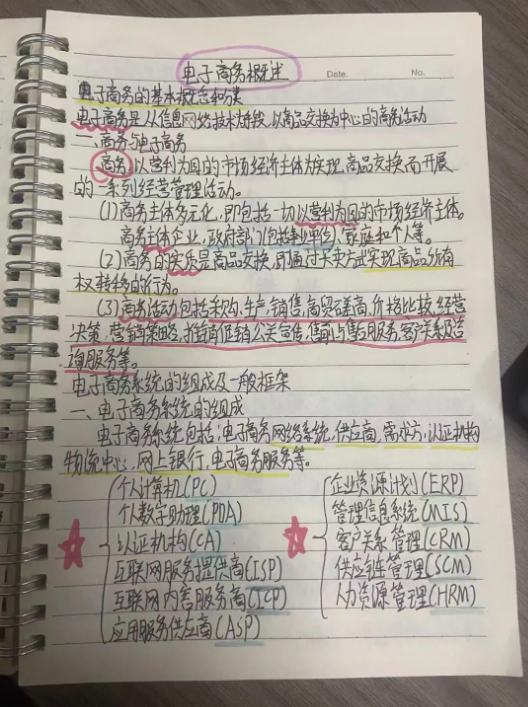 电子商务概述
Date.
No.
电子商务的基本概念和分类
电子商务是从信息网络技术为手段,以商品交换为中心的商务活动
一、商务与电子商务
商务:以营利为目的市场经济主体为实现商品交换而开展
的一系列经营管理活动。
(1)商务主体多元化,即包括一切以营利为目的市场经济主体。
商务主体企业,政府部门(包括事业单位),家庭和个人等。
(2)商务的实质是商品交换,即通过买卖方式实现商品所有
权转移的行为。
(3)商务活动包括采购、生产、销售、商贸磋商、价格比较、经营
决策、营销策略、推销促销、公关宣传、售前与售后服务、客户关系及咨
询服务等。
电子商务系统的组成及一般框架
一、电子商务系统的组成
电子商务系统包括:电子商务网络系统,供应商,需求方,认证机构
物流中心,网上银行,电子商务服务等。
个人计算机(PC)
个人数字助理(PDA)
认证机构(CA)
互联网服务提供商(ISP)
互联网内容服务商(ICP)
应用服务供应商(ASP)
企业资源计划(ERP)
管理信息系统(MIS)
客户关系管理(CRM)
供应链管理(SCM)
人力资源管理(HRM)